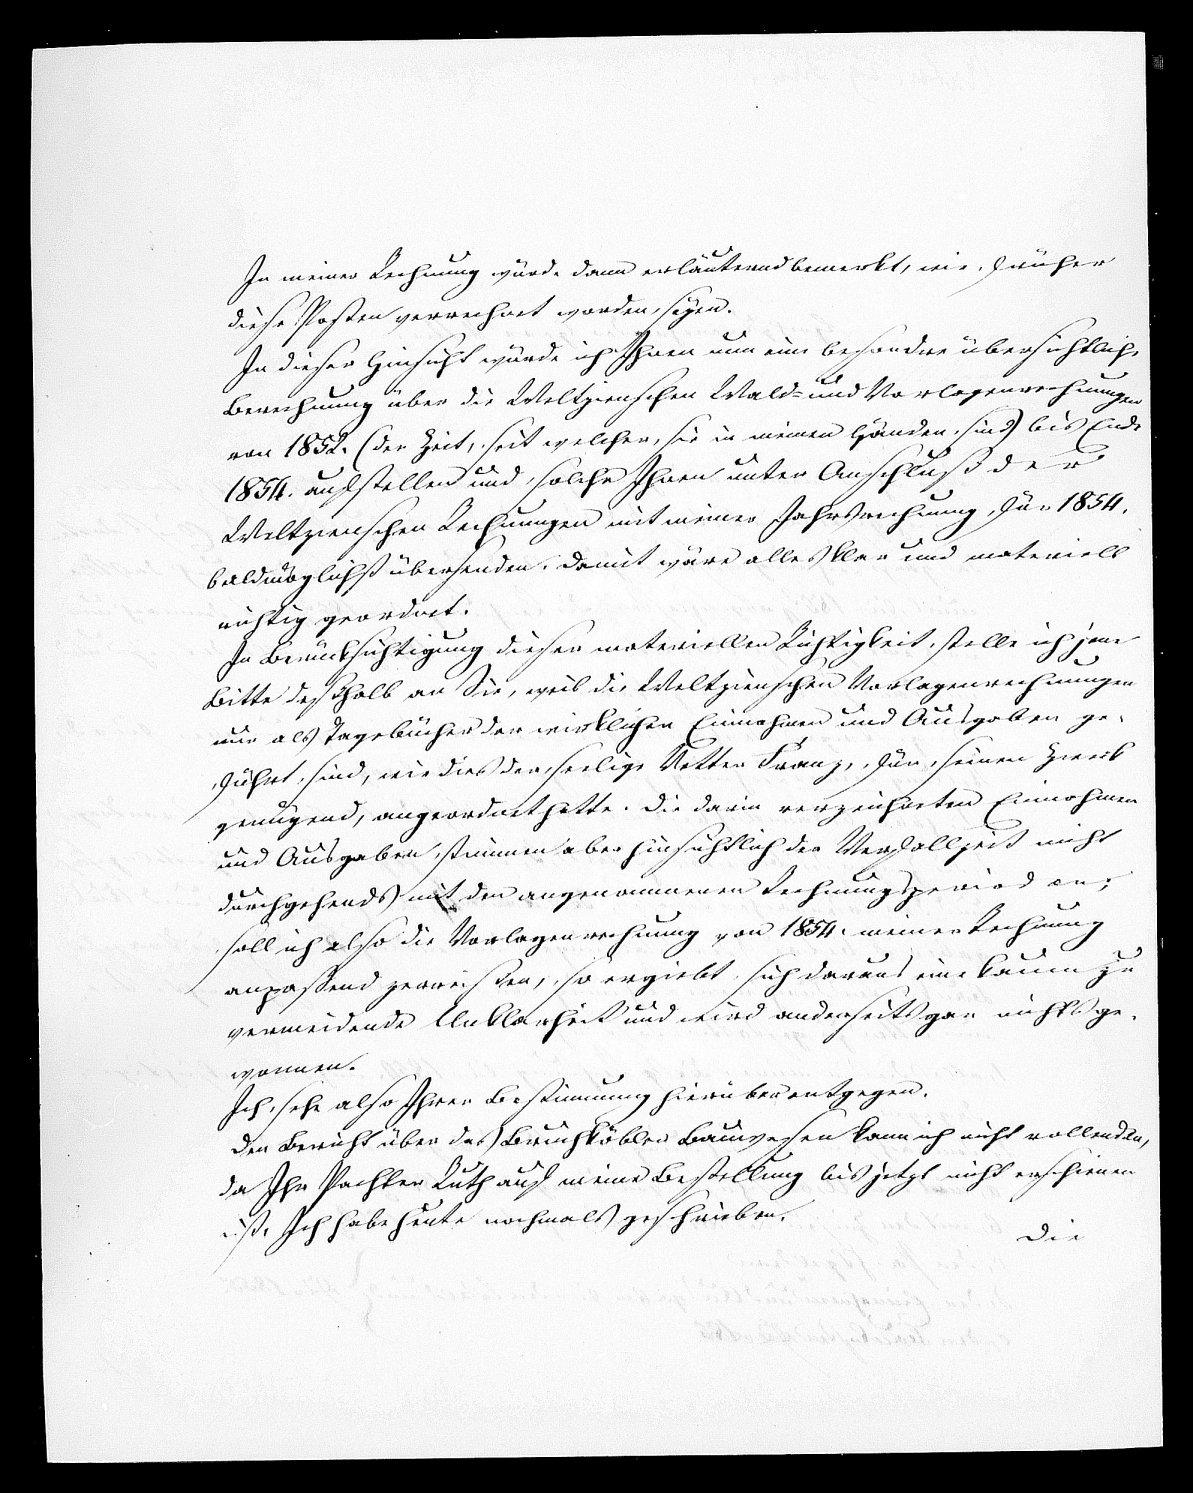 In meiner Rechnung würde dann erläuternd bemerkt, wie früher
diese Posten verrechnet worden seyen.
In dieser Hinsicht würde ich Ihnen nun eine besondre übersichtliche
Berechnung über die Weltzienschen Wald- und Vorlagenrechnungen
von 1852. (der Zeit, seit welcher sie in meinen Händen sind) bis Ende
1854. aufstellen und solche Ihnen unter Anschluß der
Weltzienschen Rechnungen mit meiner Jahrsrechnung für 1854.
baldmöglichst übersenden. Damit wäre alles klar und materiell
richtig geordnet.
In Berücksichtigung dieser materiellen Richtigkeit stelle ich jene
Bitte deshalb an Sie, weil die Weltzienschen Vorlagenrechnungen
nur als Tagebücher der wirklichen Einnahmen und Ausgaben ge-
führt sind, wie dies der seelige Vetter Franz, für seinen Zweck
genügend, angeordnet hatte. Die darin verzeichneten Einnahmen
und Ausgaben stimmen aber hinsichtlich der Verfallzeit nicht
durchgehends mit der angenommenen Rechnungsperiod an;
soll ich also die Vorlagenrechnung von 1854. meiner Rechnung
anpassend zerreissen, so ergiebt sich daraus eine kaum zu
vermeidende Unklarheit und wird anderseits gar nichts ge-
wonnen.
Ich sehe also Ihrer Bestimmung hierüber entgegen.
Den Bericht über das Bruchköbler Bauwesen kann ich nicht vollenden,
da Ihr Pachter Ruth auf meine Bestellung bis jetzt nicht erschienen
ist. Ich habe heute nochmals geschrieben.
Die